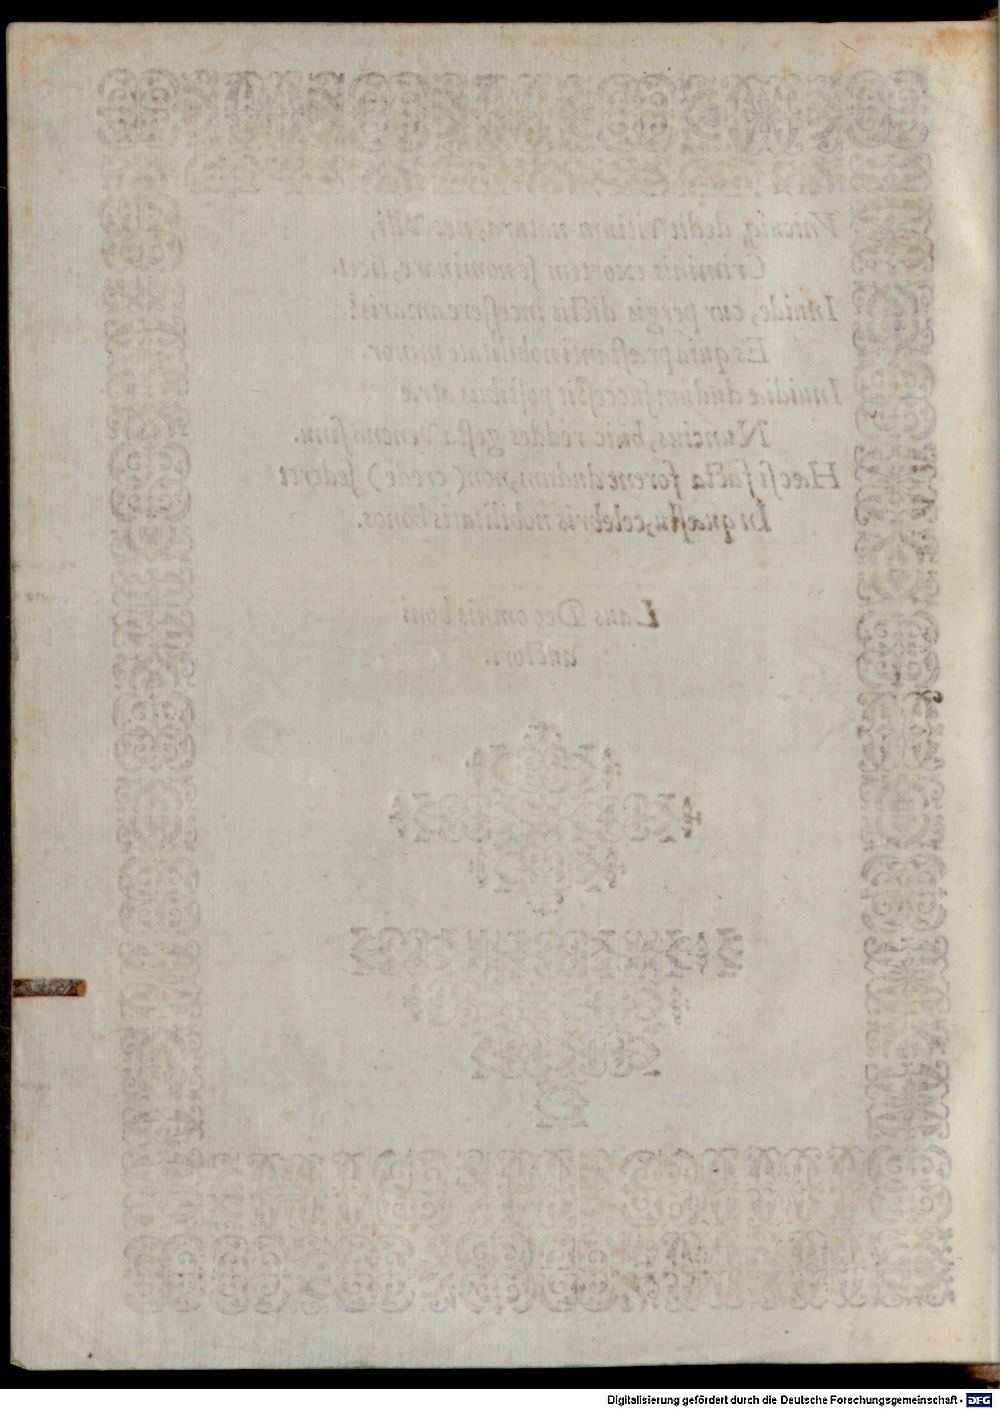 Vnicuiq, dedit vitium natura, nec vlli,
Criminis exortem se nominare, licet.
Inuide, cur pergis dictis incessere amaris?
Es quia præstanti nobilitate minor.
Inuidiæ dudum successit postibus atræ
Nuncius, huic reddes gesta venena sinu.
Hæc si facta forent dudum, non (crede) sederet
In quæstu, celebris nobilitatis honos.
Laus Deo omnis boni
auctori.
Digitalisierung gefördert durch die Deutsche Forschungsgemeinschaft - DFG